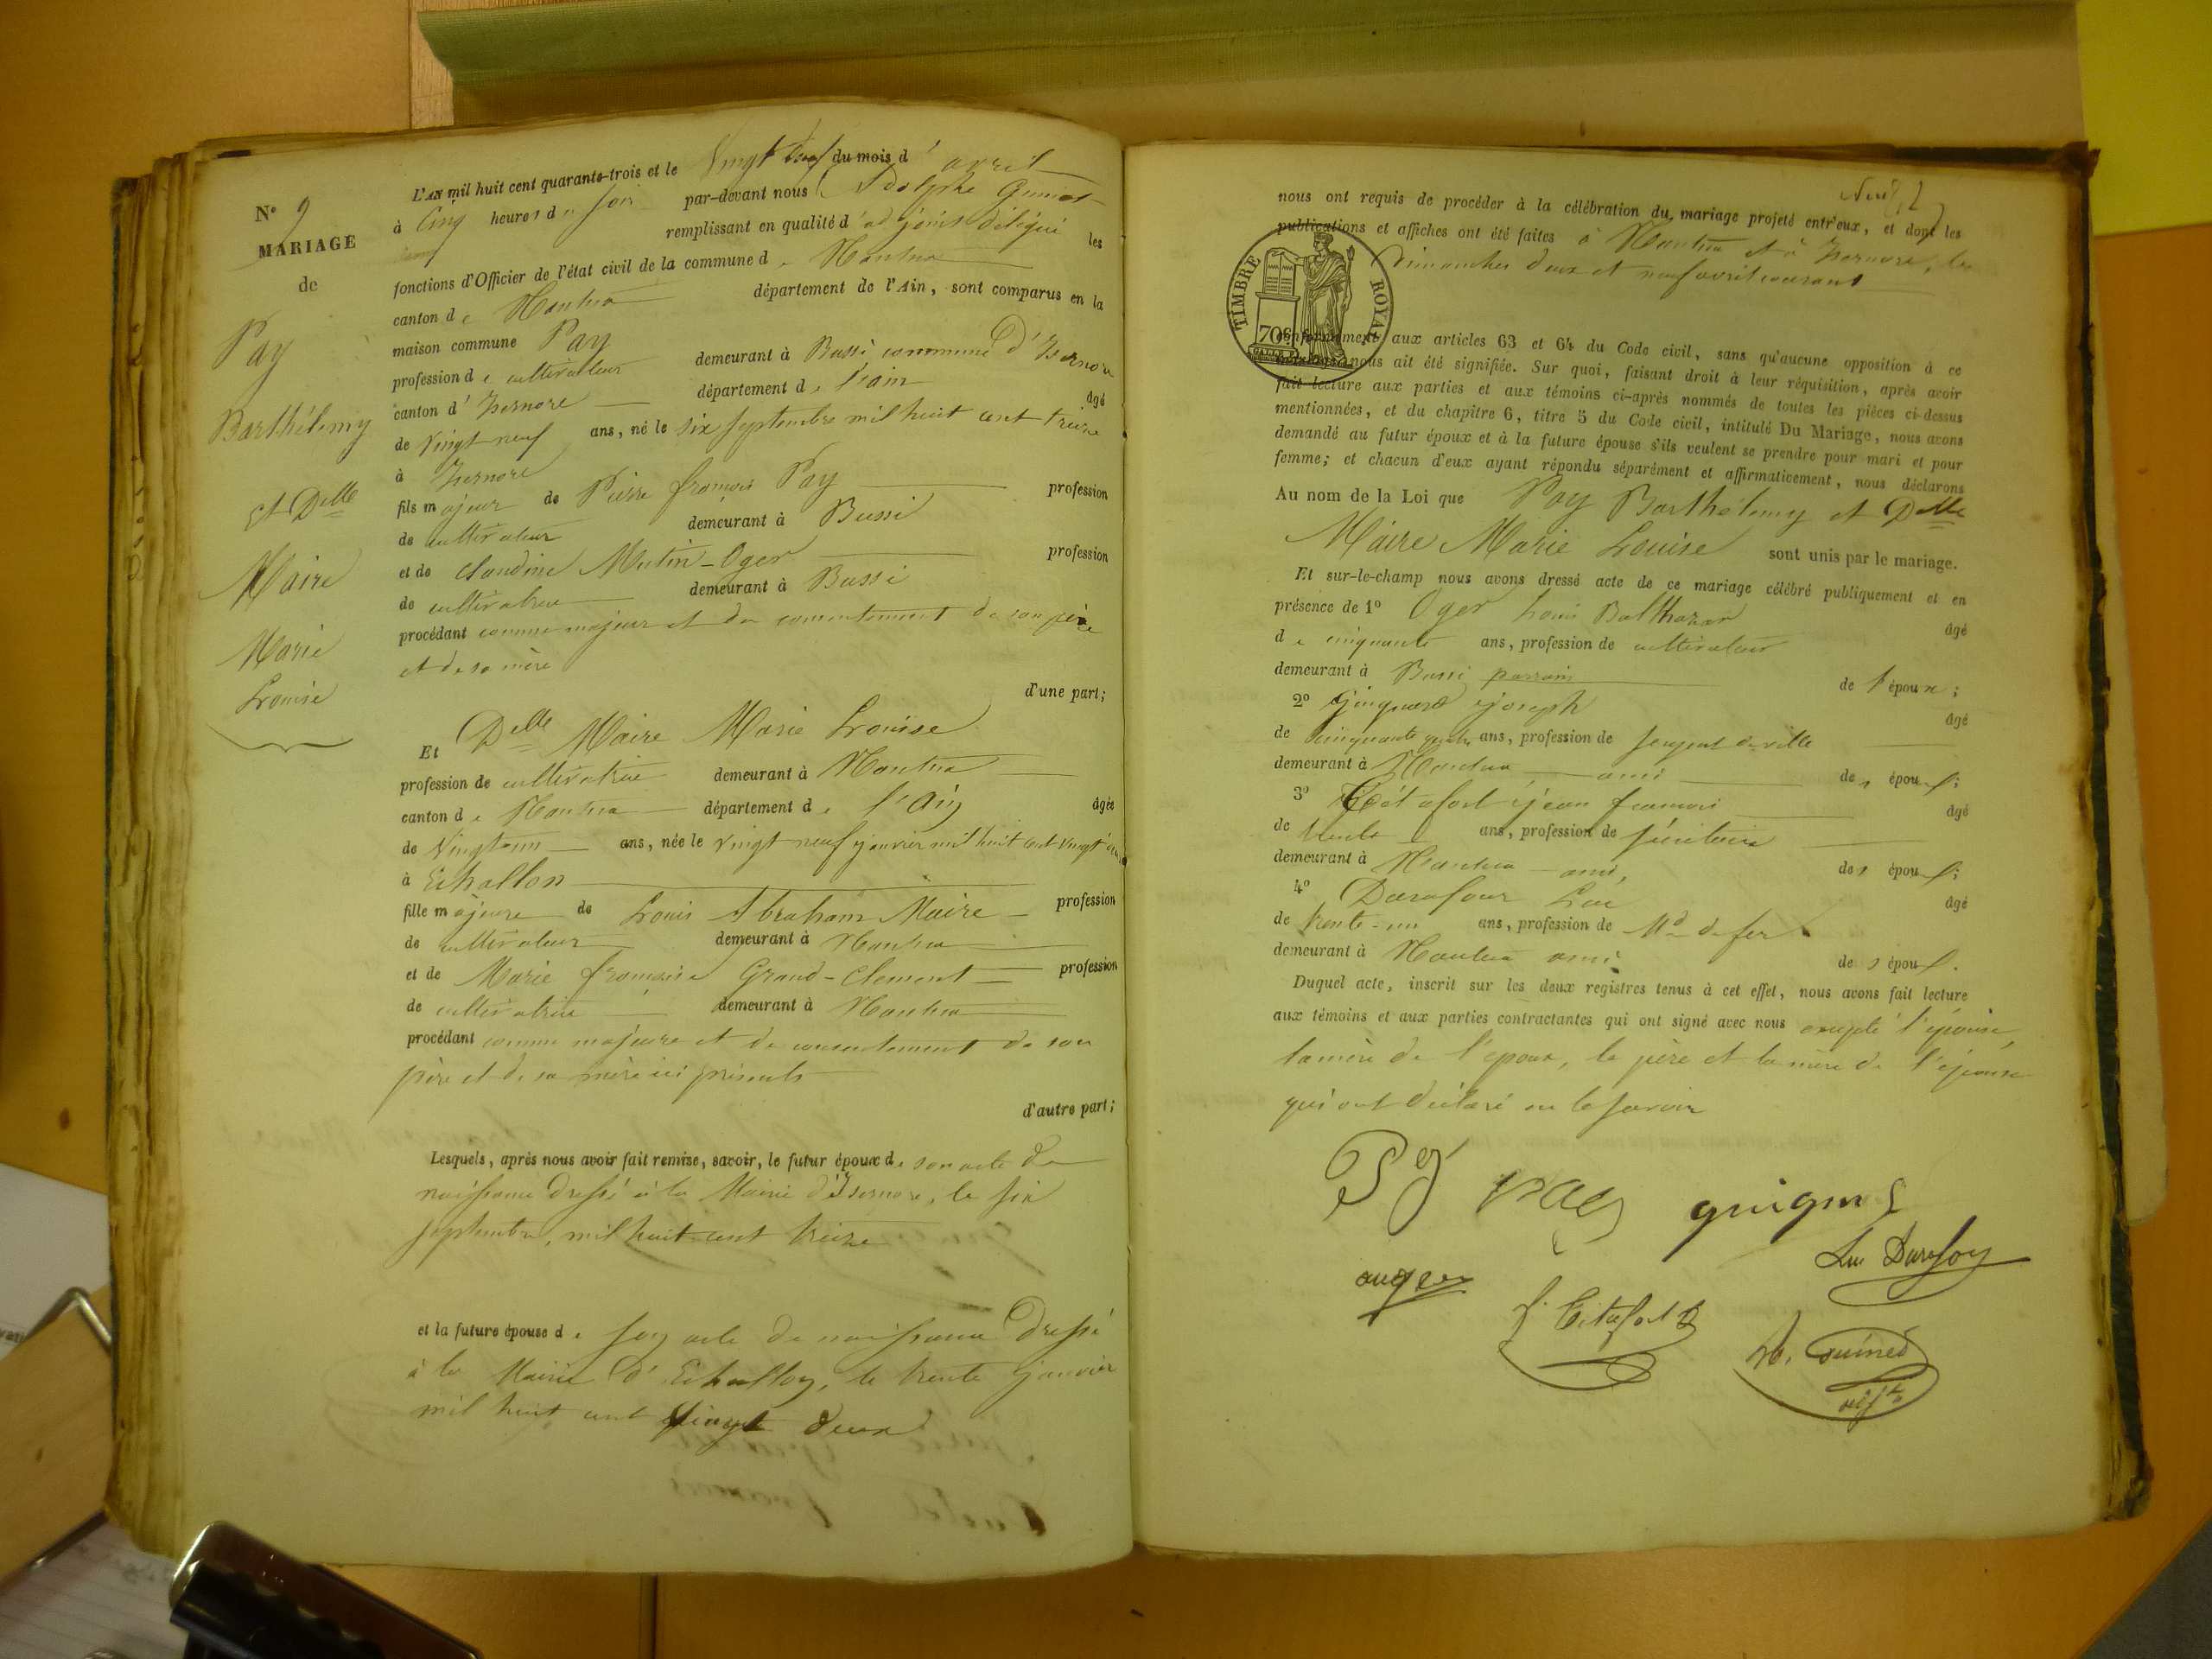 N° 9
MARIAGE
de
Pay
Barthélemy
et Delle
Maire
Marie
Louise
L'an mil huit cent quarante-trois et le Vingt du mois d'avril
à Cinq heures du soir par-devant nous Adolphe Guinet
remplissant en qualité d'adjoint délégué les
fonctions d'Officier de l'état civil de la commune de Nantua
canton de Nantua département de l'Ain, sont comparus en la
maison commune Pay
profession de cultivateur demeurant à Bussi commune d'Isernore
canton d'Isernore département de l'ain âgé
de Vingt neuf ans, né le six septembre mil huit cent treize
à Isernore
fils majeur de Pierre françois Pay profession
de cultivateur demeurant à Bussi
et de Claudine Mutin-Oger profession
de cultivatrice demeurant à Bussi
procédant comme majeur et du consentement de son père
et de sa mère
d'une part;
Et Delle Maire Marie Louise
profession de cultivatrice demeurant à Nantua
canton de Nantua département de l'Ain âgée
de Vingt un ans, née le vingt neuf janvier mil huit cent vingt
à Echallon
fille majeure de Louis Abraham Maire profession
de cultivateur demeurant à Nantua
et de Marie françoise Grand-Clement profession
de cultivatrice demeurant à Nantua
procédant comme majeure et du consentement de son
père et de sa mère ici présents
d'autre part;
Lesquels, après nous avoir fait remise, savoir, le futur époux de son acte de
naissance dressé à la Mairie d'Isernore, le six
septembre, mil huit cent treize
et la future épouse de son acte de naissance dressé
à la Mairie d'Echallon, le trente janvier
mil huit cent vingt deux
nous ont requis de procéder à la célébration du mariage projeté entr'eux, et dont les
publications et affiches ont été faites à Nantua et à Isernore, les
Dimanches deux et neuf avril courant
TIMBRE ROYAL
70c
conformément aux articles 63 et 64 du Code civil, sans qu'aucune opposition à ce
mariage nous ait été signifiée. Sur quoi, faisant droit à leur réquisition, après avoir
fait lecture aux parties et aux témoins ci-après nommés de toutes les pièces ci-dessus
mentionnées, et du chapitre 6, titre 5 du Code civil, intitulé Du Mariage, nous avons
demandé au futur époux et à la future épouse s'ils veulent se prendre pour mari et pour
femme; et chacun d'eux ayant répondu séparément et affirmativement, nous déclarons
Au nom de la Loi que Pay Barthélemy et Delle
Maire Marie Louise sont unis par le mariage.
Et sur-le-champ nous avons dressé acte de ce mariage célébré publiquement et en
présence de 1° Oger Louis Balthazar âgé
de cinquante ans, profession de cultivateur
demeurant à Bussi parrain de l'époux;
2° Guignard Joseph âgé
de cinquante quatre ans, profession de sergent de ville
demeurant à Nantua ami des époux;
3° jean francois âgé
de trente ans, profession de
demeurant à Nantua ami, des époux;
4° Darafour Luc âgé
de trente-un ans, profession de Md de fer
demeurant à Nantua ami des époux.
Duquel acte, inscrit sur les deux registres tenus à cet effet, nous avons fait lecture
aux témoins et aux parties contractantes qui ont signé avec nous excepté l'épouse,
la mère de l'époux, le père et la mère de l'épouse
qui ont déclaré ne le savoir